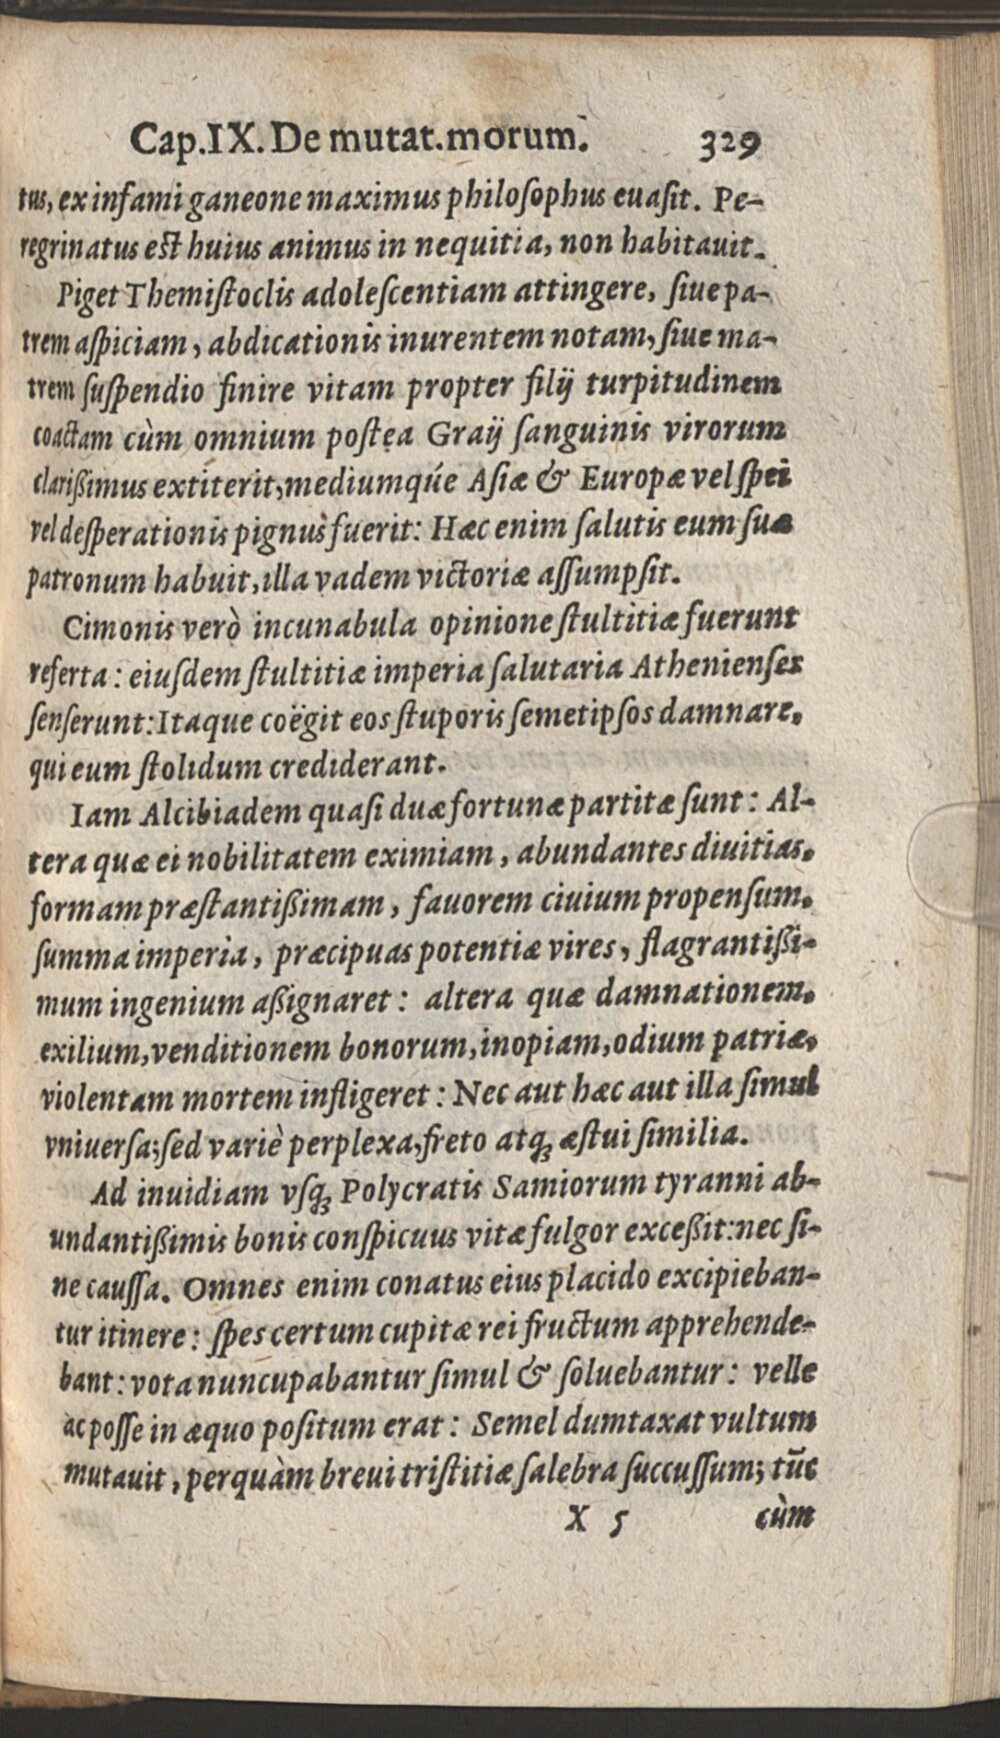 Cap.IX. De mutat.morum. 329
tus, ex infami ganeone maximus philoſophus euaſit. Pe-
regrinatus est huius animus in nequitia, non habitauit.
Piget Themiſtoclis adoleſcentiam attingere, ſiue pa-
trem aſpiciam, abdicationis inurentem notam, ſiue ma-
trem ſuſpendio finire vitam propter filij turpitudinem
coactam cùm omnium poſtea Graij ſanguinis virorum
clarißimus extiterit, mediumqúe Aſiæ & Europæ vel ſpei
vel deſperationis pignus fuerit: Hæc enim ſalutis eum ſuæ
patronum habuit, illa vadem victoriæ aſſumpſit.
Cimonis verò incunabula opinione ſtultitiæ fuerunt
referta: eiuſdem ſtultitiæ imperia ſalutaria Athenienſes
ſenſerunt: Itaque coëgit eos ſtuporis ſemetipſos damnare,
qui eum ſtolidum crediderant.
Iam Alcibiadem quaſi duæ fortunæ partitæ ſunt: Al-
tera quæ ei nobilitatem eximiam, abundantes diuitias,
formam præſtantißimam, fauorem ciuium propenſum,
ſumma imperia, præcipuas potentiæ vires, flagrantißi-
mum ingenium aßignaret: altera quæ damnationem,
exilium, venditionem bonorum, inopiam, odium patriæ,
violentam mortem infligeret: Nec aut hæc aut illa ſimul
vniuerſa; ſed variè perplexa, freto atq; æſtui ſimilia.
Ad inuidiam vſq; Polycratis Samiorum tyranni ab-
undantißimis bonis conſpicuus vitæ fulgor exceßit: nec ſi-
ne cauſſa. Omnes enim conatus eius placido excipieban-
tur itinere: ſpes certum cupitæ rei fructum apprehende-
bant: vota nuncupabantur ſimul & ſoluebantur: velle
ac poſſe in æquo poſitum erat: Semel dumtaxat vultum
mutauit, perquàm breui triſtitiæ ſalebra ſuccuſſum; tūc
X 5 cùm